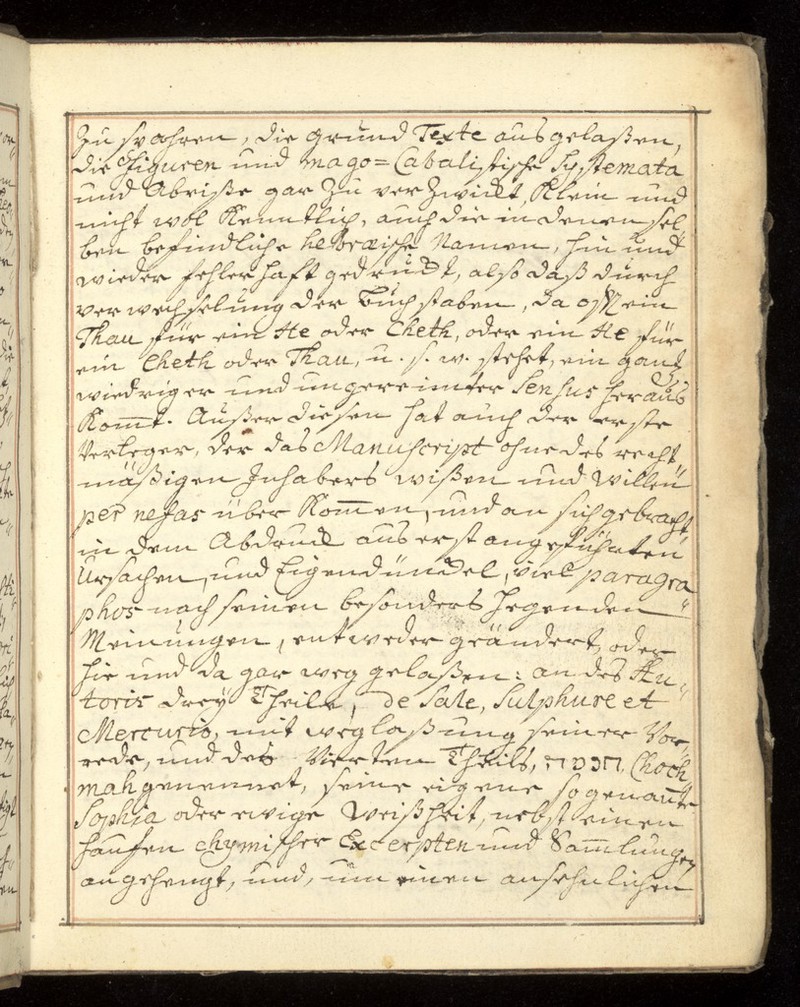 zu spahren, die grund Texte ausgelaßen,
die Figuren und mago=Cabalistische Systemata
und Abriße gar zu verzwickt, klein und
nicht wol kenntlich, auch die in denensel„
ben befindliche hebræische Namen, hin und
wieder fehlerhaft gedruckt, also daß durch
verwechselung der Buchstaben, da oft ein
Thau für ein He oder Cheth, oder ein He für
ein Cheth oder Thau, u. s. w. stehet, ein gantz
wiedriger und ungereimter Sensus heraus
kom̄t. Außer diesen hat auch der erste
Verleger, der das Manuscript ohne des recht
mäßigen Inhabers wißen und willen
per nefas über kom̄en, und an sich gebracht,
in dem Abdruck aus erst angeführten
Ursachen, und Eigendünckel, viel paragra
phos nach seinen besonders hegenden
Meinungen, entweder geändert, oder
hie und da gar weg gelaßen: an des Au„
toris drey Theile, de Sale, Sulphure et
Mercurio, mit weglaßung seiner Vor„
rede, und des Vierten Theils, חכמה, Choch
mah genennet, seine eigene sogenan̄te
Sophia oder ewige Weißheit, nebst einen
hauffen chymischer Excerpten und Sam̄lungen
angehengt, und, um einen ansehnlichen